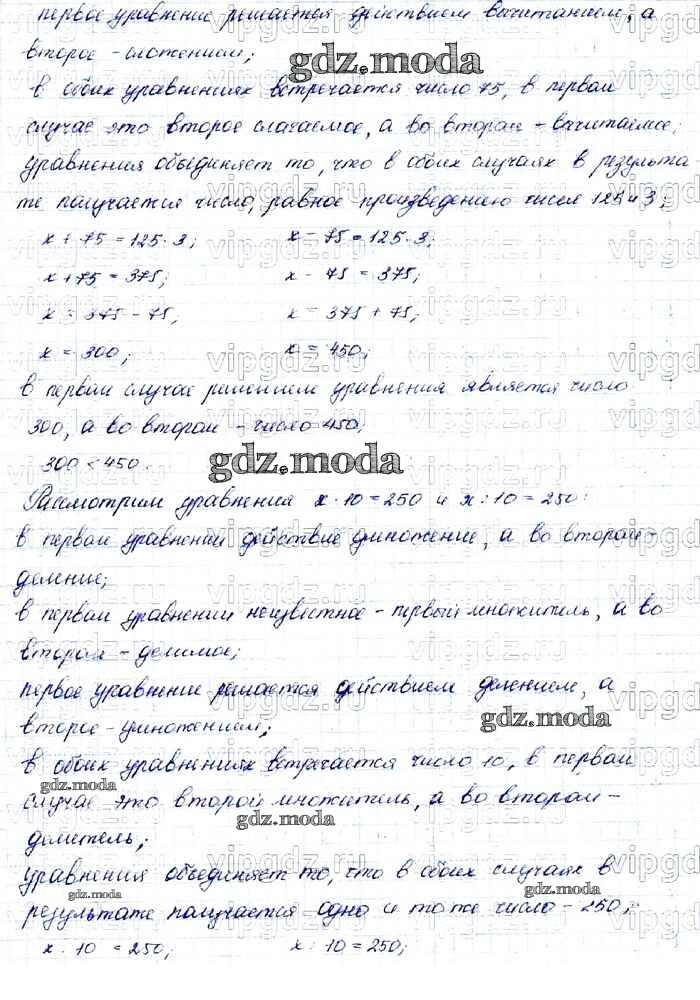 первое уравнение решается действием вычитанием, а
второе - сложением;
gdz.moda
в обоих уравнениях встречается число 75, в первом
случае это второе слагаемое, а во втором - вычитаемое;
уравнения объединяет то, что в обоих случаях в результа
те получается число, равное произведению чисел 125 и 3;
x + 75 = 125 · 3; x - 75 = 125 · 3;
x + 75 = 375; x - 75 = 375;
x = 375 - 75; x = 375 + 75;
x = 300; x = 450;
в первом случае решением уравнения является число
300, а во втором - число 450;
300 < 450.
gdz.moda
Рассмотрим уравнения x · 10 = 250 и x : 10 = 250:
в первом уравнении действие умножение, а во втором -
деление;
в первом уравнении неизвестное - первый множитель, а во
втором - делимое;
первое уравнение решается действием делением, а
второе - умножением;
gdz.moda
в обоих уравнениях встречается число 10, в первом
gdz.moda
случае это второй множитель, а во втором -
gdz.moda
делитель;
уравнения объединяет то, что в обоих случаях в
gdz.moda
gdz.moda
результате получается одно и то же число - 250;
x · 10 = 250; x : 10 = 250;